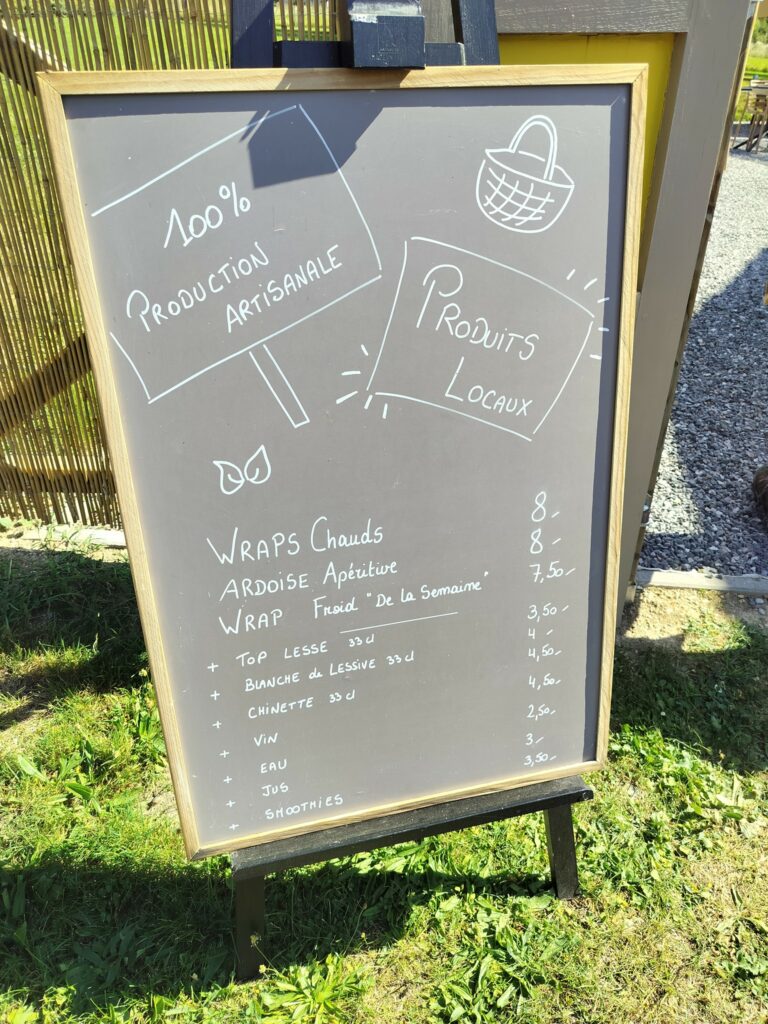 100%
PRODUCTION
ARTISANALE
PRODUITS
LOCAUX
WRAPS Chauds 8,-
ARDOISE Apéritive 8,-
WRAP Froid "De la Semaine" 7,50-
+ TOP LESSE 33 cl 3,50-
+ BLANCHE de LESSIVE 33 cl 4 -
+ CHINETTE 33 cl 4,50-
+ VIN 4,50-
+ EAU 2,50-
+ JUS 3-
+ SMOOTHIES 3,50-